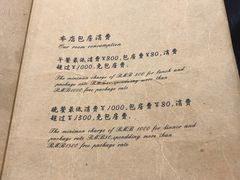 本店包房消費
Our room consumption
午餐最低消費¥800,包房費¥80,消費
超过¥1000,免包房費。
The minimum charge of RMB 800 for lunch and
package rate RMB80,spendding more than
RMB1000 free package rate
晚餐最低消費¥1000,包房費¥80,消費
超过¥1500,免包房費。
The minimum charge of RMB 1000 for dinner and
package rate RMB80,spendding more than
RMB1500 free package rate